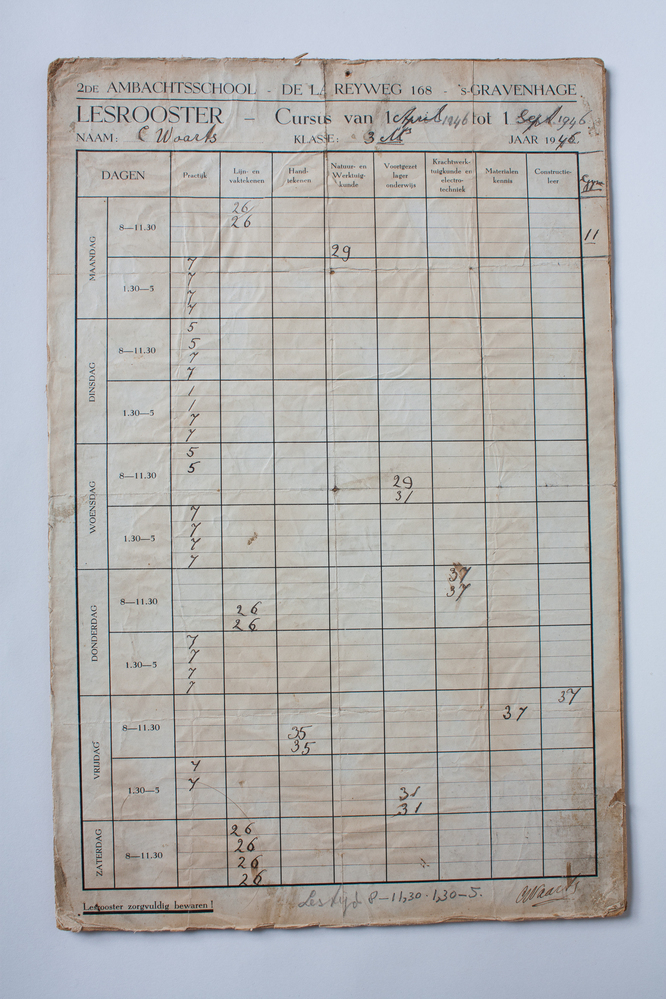 2DE AMBACHTSSCHOOL - DE LA REYWEG 168 - 's-GRAVENHAGE
LESROOSTER – Cursus van 1 April 1946 tot 1 Sept. 1946
NAAM: C Waarts KLASSE: 3 JAAR 1946.
DAGEN Practijk Lijn- en vaktekenen Hand-tekenen Natuur- en Werktuig-kunde Voortgezet lager onderwijs Krachtwerk-tuigkunde en electro-techniek Materialen kennis Constructie-leer
MAANDAG
8—11.30
26
26
11
29
1.30—5
7
7
7
7
DINSDAG
8—11.30
5
5
7
7
1.30—5
1
1
7
7
WOENSDAG
8—11.30
5
5
29
31
1.30—5
7
7
7
7
DONDERDAG
8—11.30
37
37
26
26
1.30—5
7
7
7
7
VRIJDAG
8—11.30
37
37
35
35
1.30—5
7
7
31
31
ZATERDAG
8—11.30
26
26
26
26
Lesrooster zorgvuldig bewaren!
Lestijd 8–11,30-1,30–5.
C Waarts